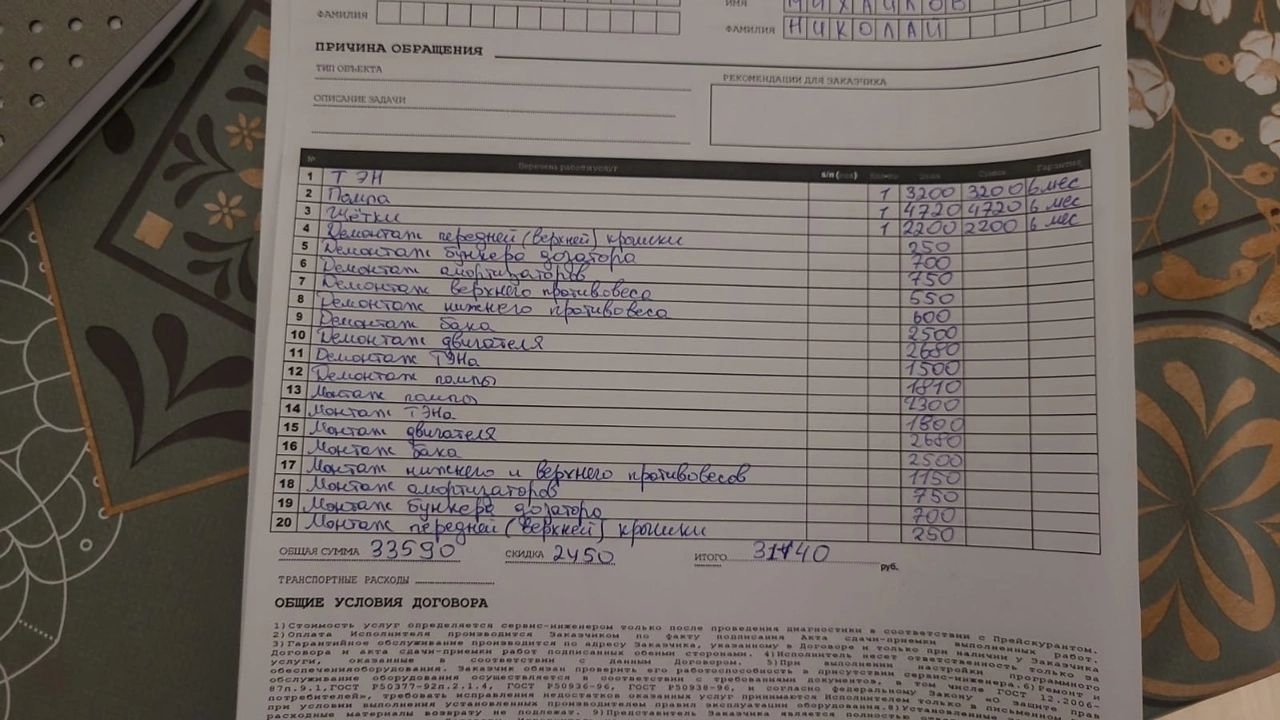 ИМЯ МИХАЙЛОВ
ФАМИЛИЯ
ФАМИЛИЯ НИКОЛАЙ
ПРИЧИНА ОБРАЩЕНИЯ
ТИП ОБЪЕКТА
РЕКОМЕНДАЦИИ ДЛЯ ЗАКАЗЧИКА
ОПИСАНИЕ ЗАДАЧИ
№ Перечень работ и услуг Кол-во Цена Сумма Гарантия
1 ТЭН 1 3200 3200 6 мес
2 Помпа 1 4720 4720 6 мес
3 Щётки 1 2200 2200 6 мес
4 Демонтаж передней (верхней) крышки 250
5 Демонтаж бункера дозатора 700
6 Демонтаж амортизаторов 750
7 Демонтаж верхнего противовеса 550
8 Демонтаж нижнего противовеса 600
9 Демонтаж бака 2500
10 Демонтаж двигателя 2680
11 Демонтаж ТЭНа 1500
12 Демонтаж помпы 1810
13 Монтаж помпы 2300
14 Монтаж ТЭНа 1800
15 Монтаж двигателя 2680
16 Монтаж бака 2500
17 Монтаж нижнего и верхнего противовесов 1150
18 Монтаж амортизаторов 750
19 Монтаж бункера дозатора 700
20 Монтаж передней (верхней) крышки 250
ОБЩАЯ СУММА 33590 СКИДКА 2450 ИТОГО 31140 руб.
ТРАНСПОРТНЫЕ РАСХОДЫ
ОБЩИЕ УСЛОВИЯ ДОГОВОРА
1)Стоимость услуг определяется сервис-инженером только после проведения диагностики в соответствии с Прейскурантом.
2)Оплата Исполнителя производится Заказчиком по факту подписания Акта сдачи-приемки выполненных работ.
3)Гарантийное обслуживание производится по адресу Заказчика, указанному в Договоре и только при наличии у Заказчика
Договора и акта сдачи-приемки работ подписанных обеими сторонами. 4)Исполнитель несет ответственность только за
услуги, оказанные в соответствии с данным Договором. 5)При выполнении настройки программного
обеспечения оборудования. Заказчик обязан проверить его работоспособность в присутствии сервис-инженера.6)Ремонт и
обслуживание оборудования осуществляется в соответствии с требованиями документов, в том числе ГОСТ 12.2006-
87п.9.1,ГОСТ Р50377-92п.2.1.4, ГОСТ Р50936-96, ГОСТ Р50938-96, и согласно федеральному Закону «О защите прав
потребителей», требовать исправления недостатков оказанных услуг принимаются Исполнителем только в письменном
при условии выполнения установленных производителем правил эксплуатации оборудования.8)Установленные
расходные материалы возврату не подлежат. 9)Представитель Заказчика является полностью